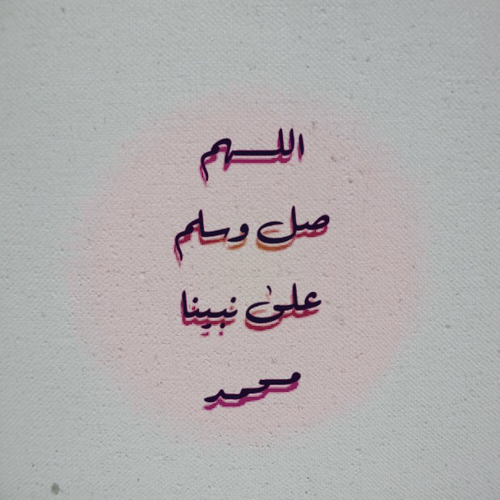 اللهم
صل وسلم
على نبينا
محمد